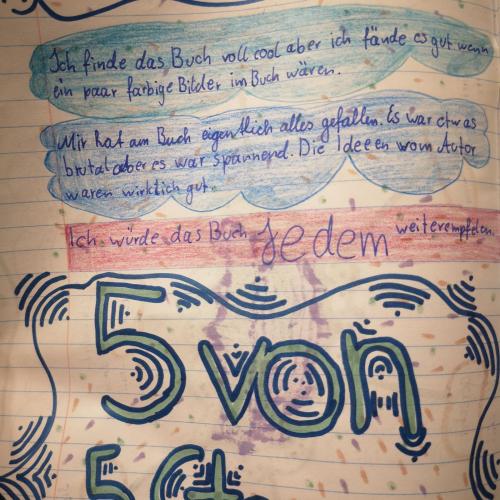 Ich finde das Buch voll cool aber ich fände es gut wenn
ein paar farbige Bilder im Buch wären.
Mir hat am Buch eigentlich alles gefallen. Es war etwas
brutal aber es war spannend. Die Ideeen vom Autor
waren wirklich gut.
Ich würde das Buch Jedem weiterempfelen.
5 von
5 St